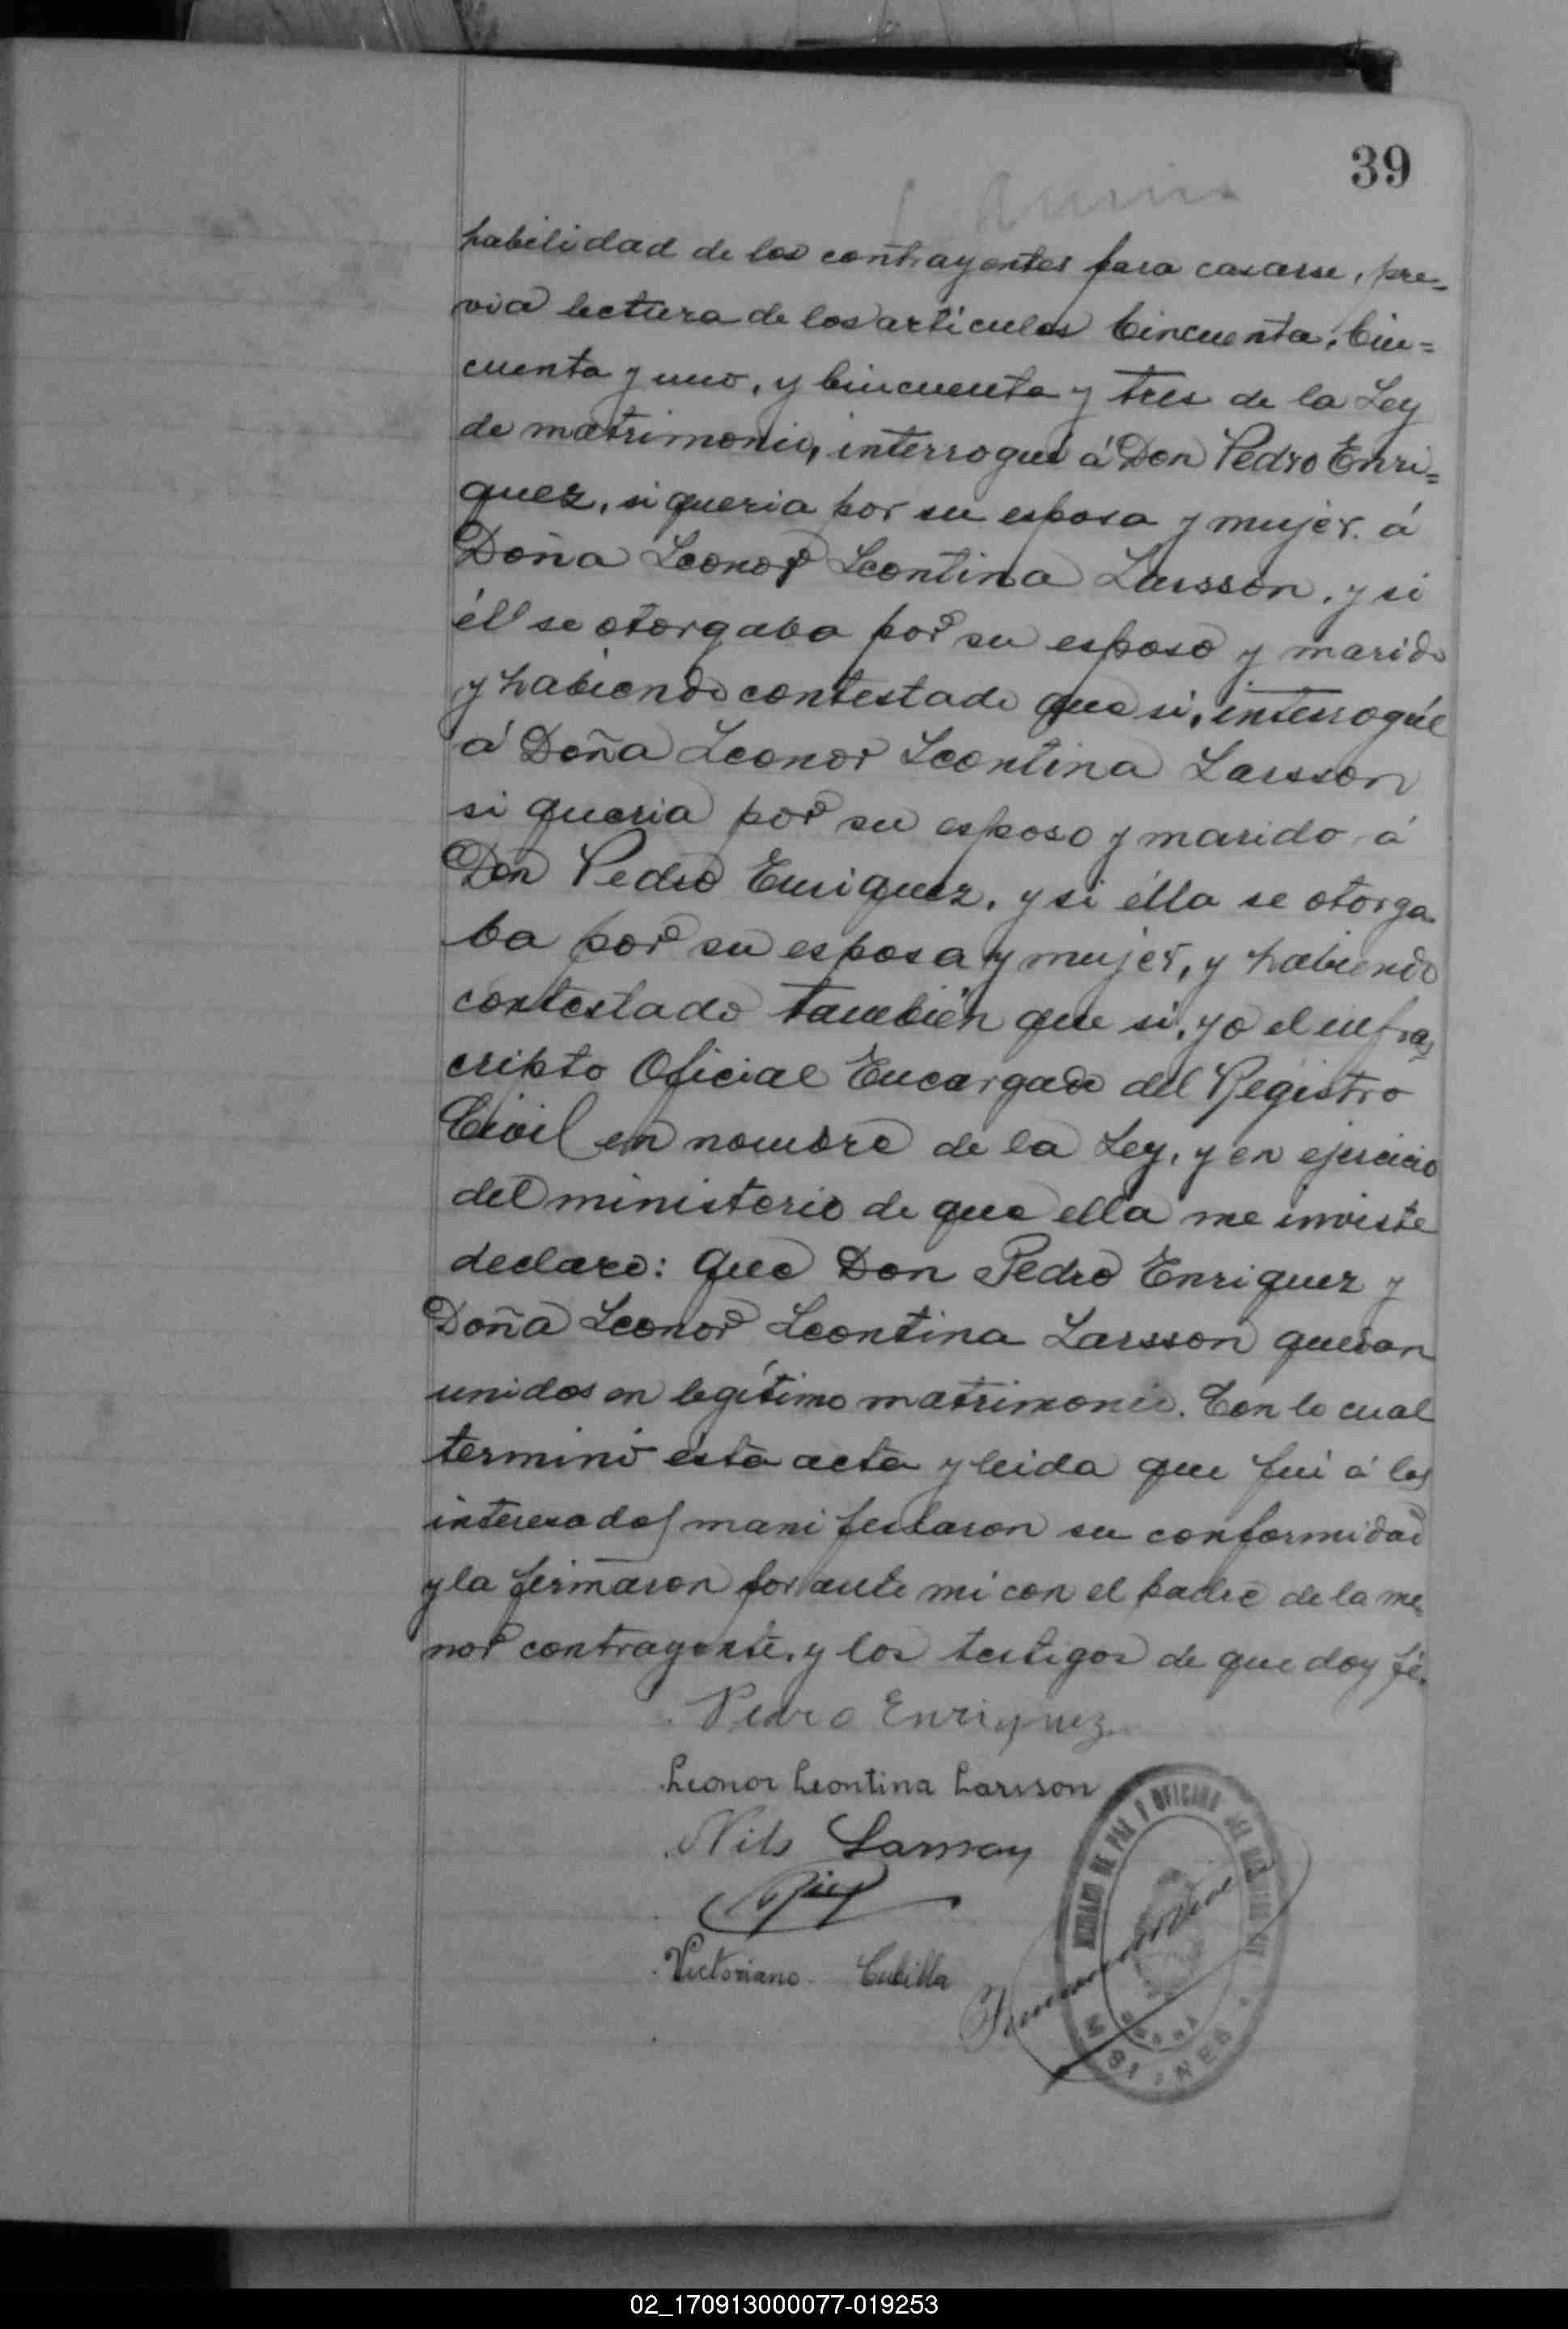 39
habilidad de los contrayentes para casarse, pre=
via lectura de los articulos Cincuenta, Cin=
cuenta y uno, y Cincuenta y tres de la Ley
de matrimonio, interrogué á Don Pedro Enri=
quez, si queria por su esposa y mujer á
Doña Leonor Leontina Larsson, y si
él se otorgaba por su esposo y marido
y habiendo contestado que si, interrogué
á Doña Leonor Leontina Larsson
si queria por su esposo y marido á
Don Pedro Enriquez, y si élla se otorga
ba por su esposa y mujer, y habiendo
contestado también que si, yo el infras
cripto Oficial Encargado del Registro
Civil en nombre de la Ley, y en ejercicio
del ministerio de que ella me inviste
declaro: que Don Pedro Enriquez y
Doña Leonor Leontina Larsson quedan
unidos en legítimo matrimonio. Con lo cual
terminó esta acta y leida que fué á los
interesados manifestaron su conformidad
y la firmaron por ante mi con el padre de la me
nor contrayente, y los testigos de que doy fé.
Pedro Enriquez
Leonor Leontina Larsson
Nils
Victoriano Cubilla
JUZGADO DE PAZ Y OFICINA DEL
02_170913000077-019253